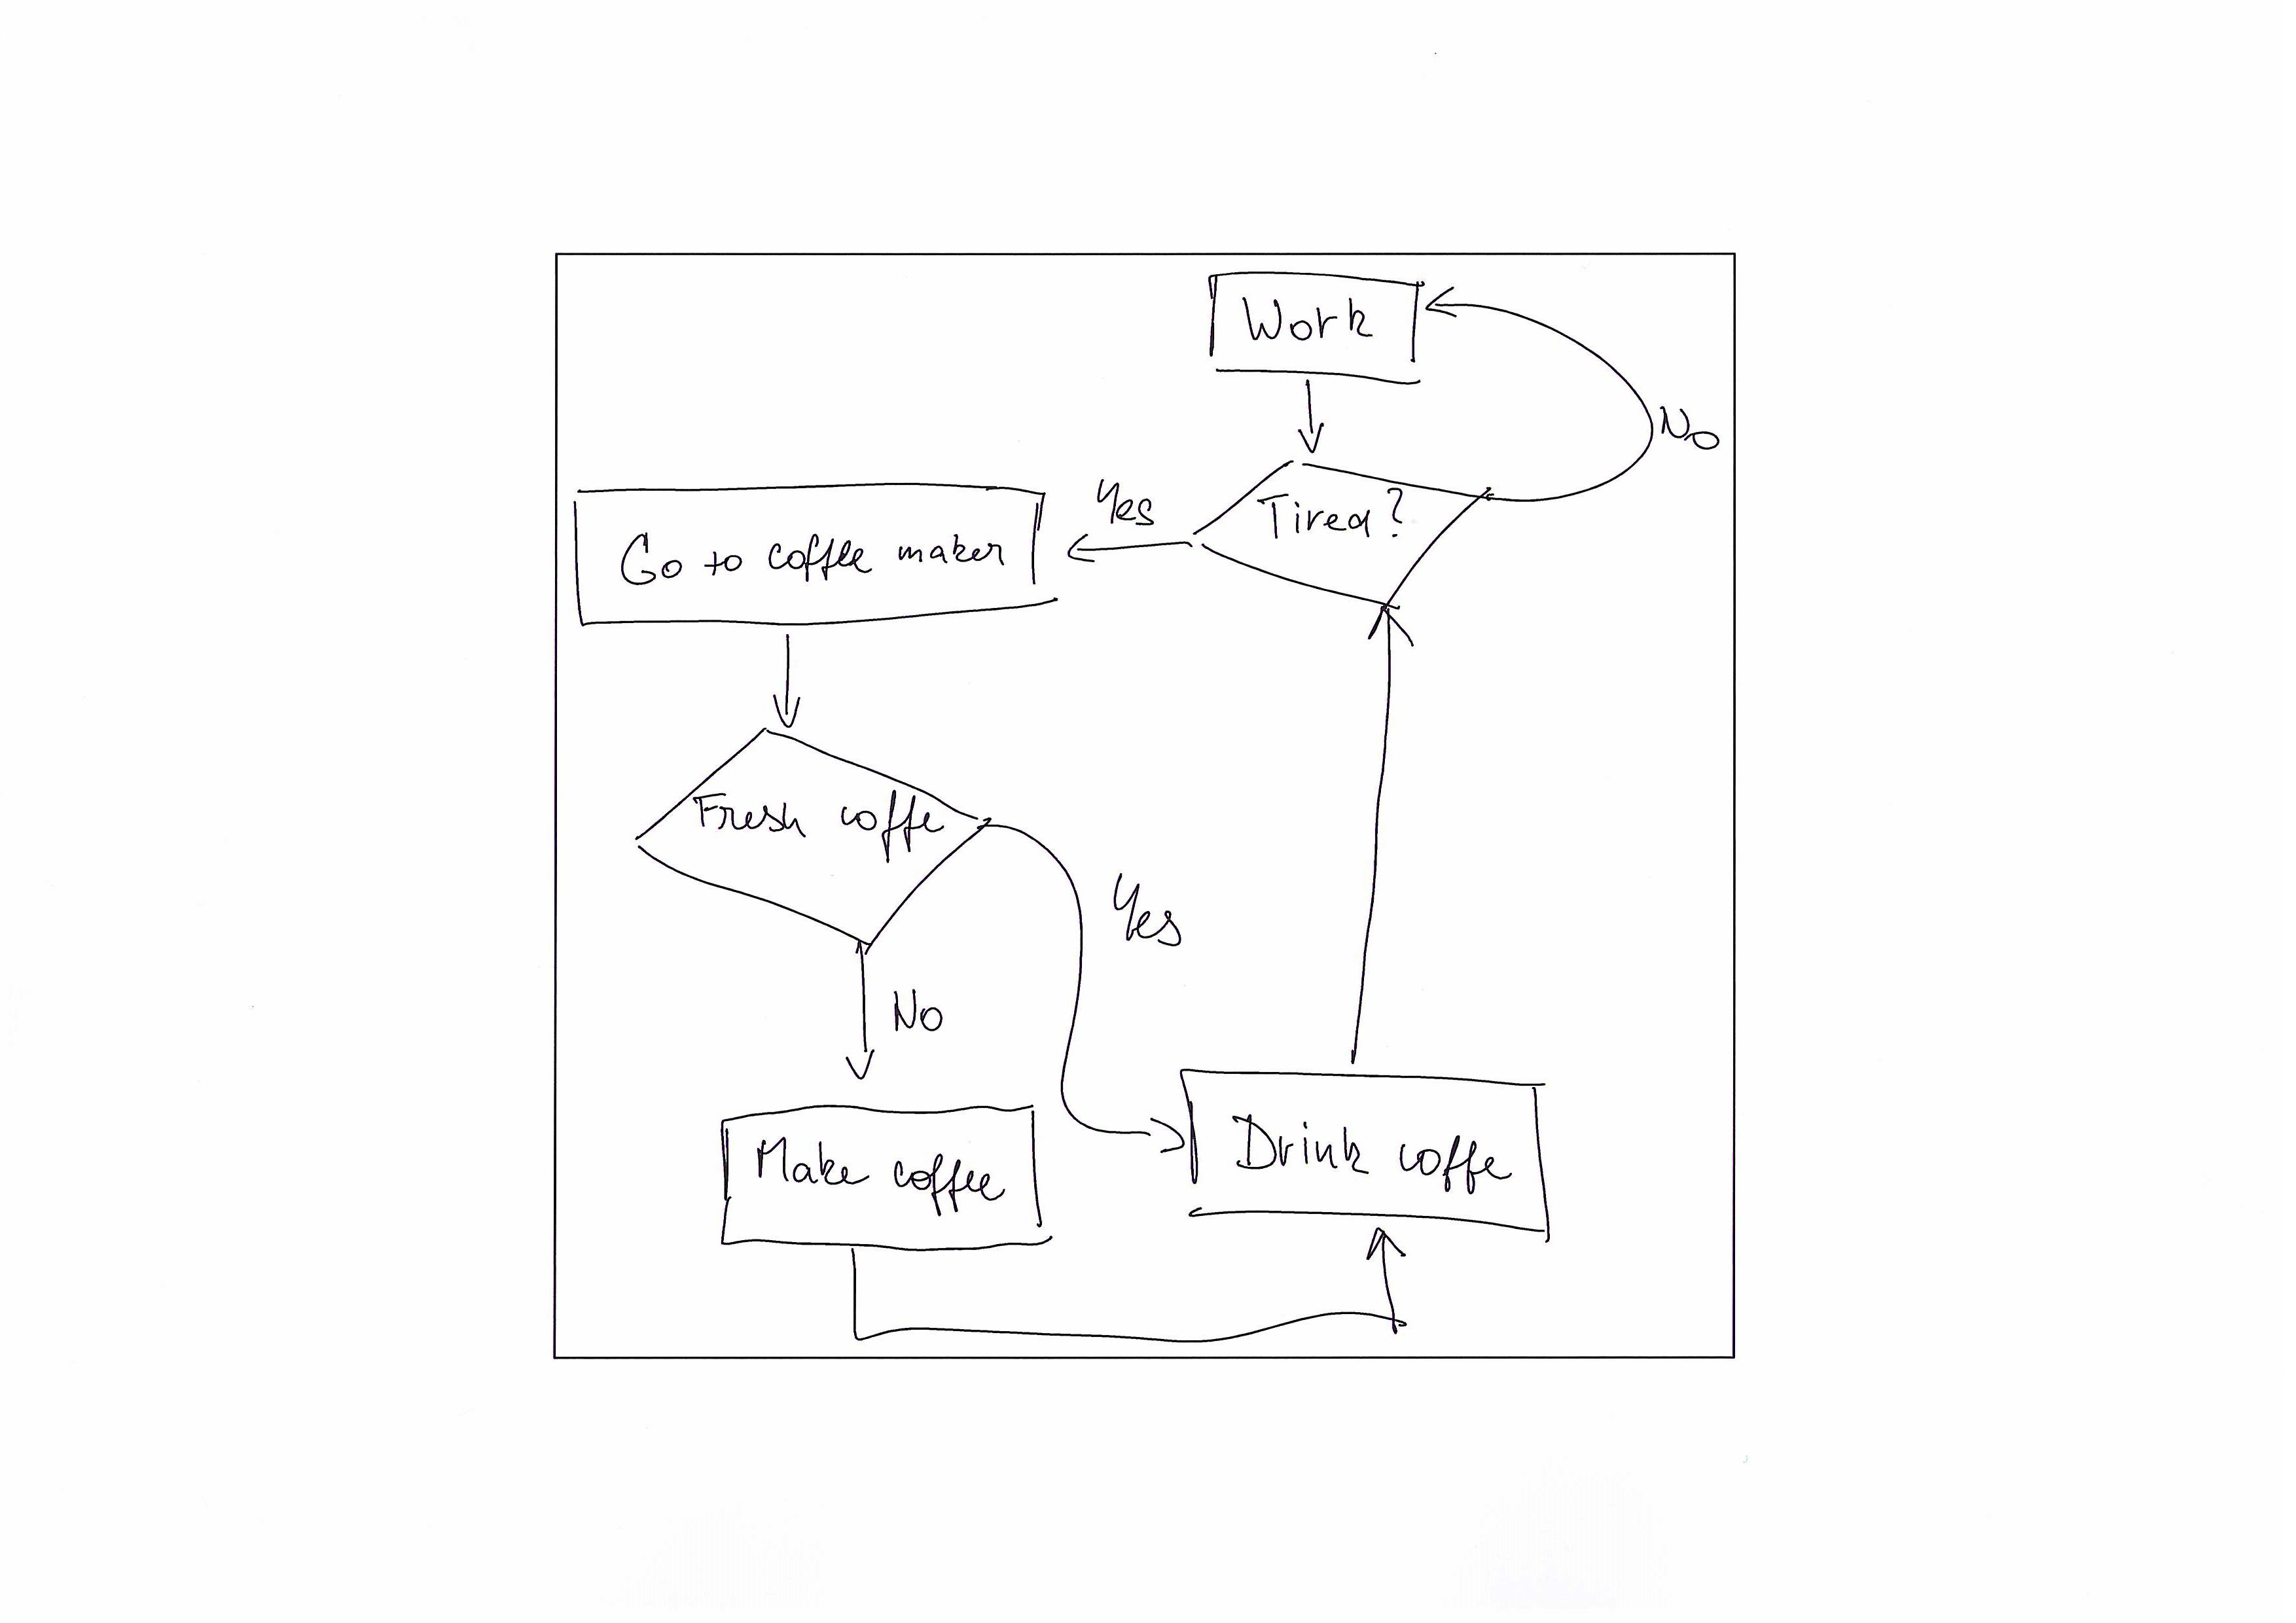 Work
No
Yes
Tired?
Go to coffee maker
Fresh coffe
Yes
No
Make coffee
Drink coffe